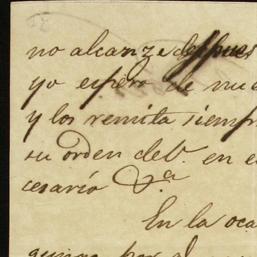 no alcanze despues
yo espero de nue
y los remita siempr
su orden deV. en e
cesario &.a
En la oca